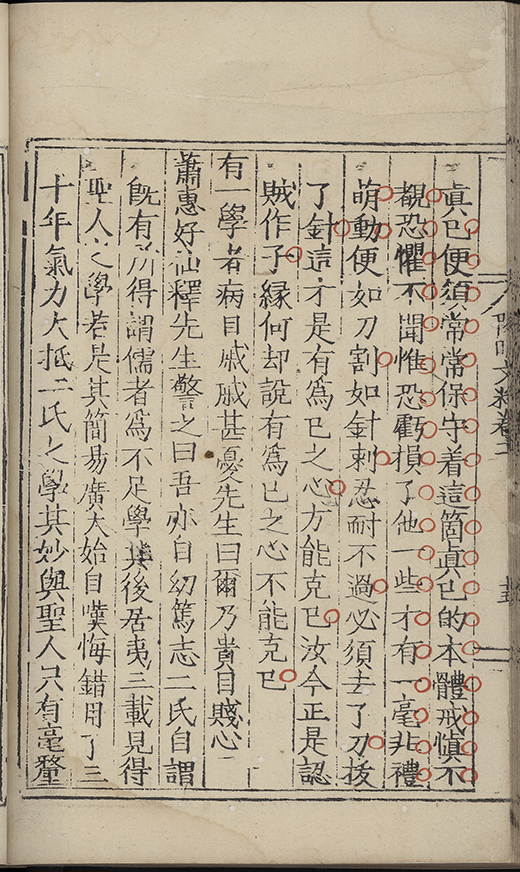 陽明文粹卷二
眞已便須常常保守着這箇眞已的本體戒愼不
覩恐懼不聞惟恐虧損了他一些才有一毫非禮
萌動便如刀割如針刺忍耐不過必須去了刀拔
了針這才是有爲已之心方能克已汝今正是認
賊作子縁何却說有爲已之心不能克已
有一學者病目戚戚甚憂先生曰爾乃貴目賤心
蕭惠好仙釋先生警之曰吾亦自幼篤志二氏自謂
旣有所得謂儒者爲不足學其後居夷三載見得
聖人之學若是其簡易廣大始自嘆悔錯用了三
十年氣力大抵二氏之學其妙與聖人只有毫釐